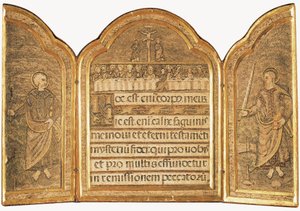 Hoc est eni corpus meus
Hic est eni calix saguinis
mei noui et eterni testameti
mysteriu fidei qui pro uobis
et pro multis effundetur
in remissionem peccatoru